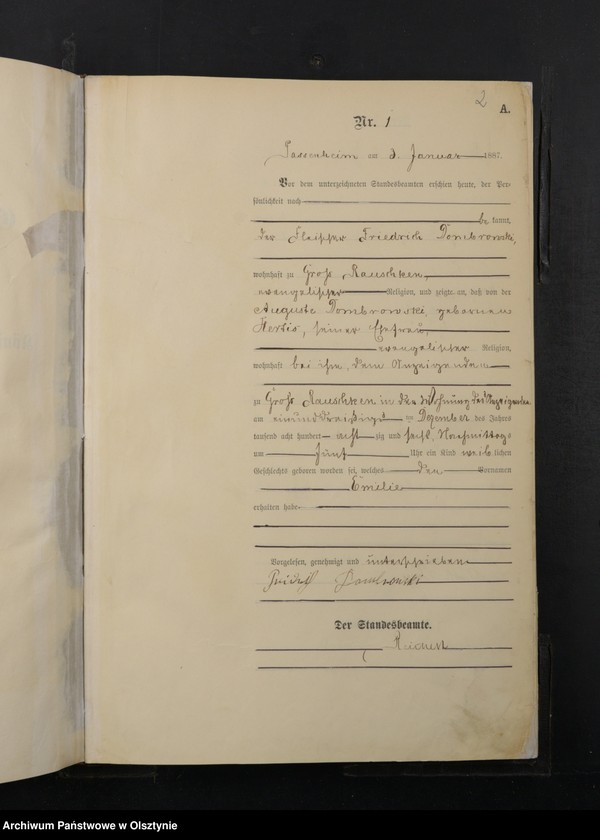 2
A.
Nr. 1
Passenheim am 3. Januar 1887.
Vor dem unterzeichneten Standesbeamten erschien heute, der Per-
sönlichkeit nach
be kannt,
der Fleischer Friedrich Dombrowski,
wohnhaft zu Groß Rauschken
evangelischer Religion, und zeigte an, daß von der
Auguste Dombrowski, geborenen
seiner Ehefrau,
evangelischer Religion,
wohnhaft bei ihm, dem Anzeigenden
zu Groß Rauschken in der Wohnung des Anzeigenden
am einunddreißigsten Dezember des Jahres
tausend acht hundert acht zig und sechs, Nachmittags
um fünf Uhr ein Kind weib lichen
Geschlechts geboren worden sei, welches den Vornamen
Emelie
erhalten habe
Vorgelesen, genehmigt und unterschrieben
Friedrich Dombrowski
Der Standesbeamte.
Archiwum Państwowe w Olsztynie